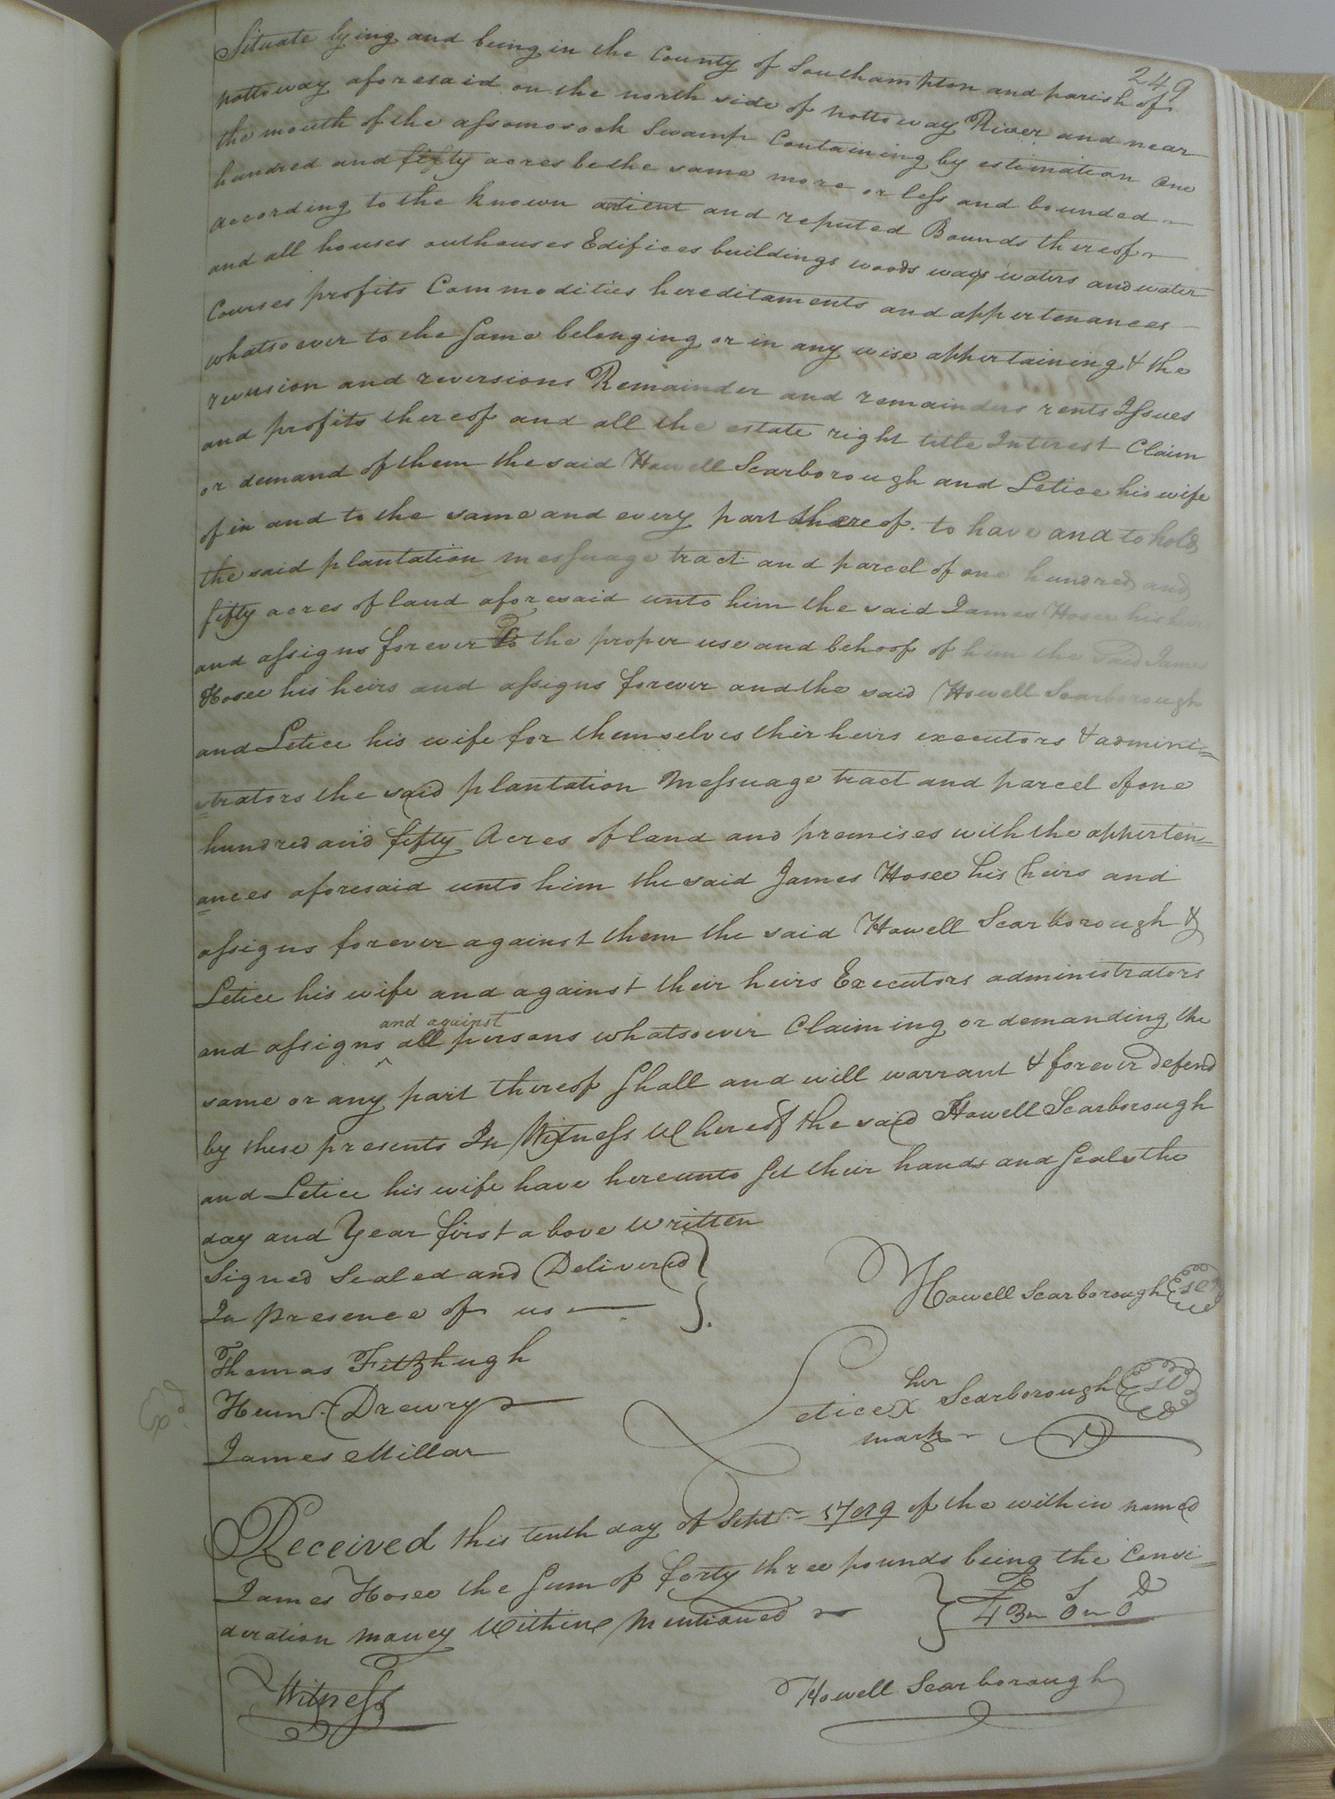 249
Situate lying and being in the County of Southampton and parish of
nottoway aforesaid on the north side of nottoway River and near
the mouth of the assomosock Swamp Containing by estimation One
hundred and fifty acres be the same more or less and bounded
according to the known antient and reputed Bounds thereof
and all houses outhouses Edifices buildings woods ways waters and water
Courses profits Commodities hereditaments and appurtenances
whatsoever to the same belonging or in any wise appertaining & the
revusion and reversions Remainder and remainders rents Issues
and profits thereof and all the estate right title Interest Claim
or demand of them the said Howell Scarborough and Letice his wife
of in and to the same and every part thereof. to have and to hold
the said plantation messuage tract and parcel of one hundred and
fifty acres of land aforesaid unto him the said James Hosee his heirs
and assigns forever To the proper use and behoof of him the said James
Hosee his heirs and assigns forever and the said Howell Scarborough
and Letice his wife for themselves their heirs executors & admini=
strators the said plantation Messuage tract and parcel of one
hundred and fifty Acres of land and premises with the apperten=
ances aforesaid unto him the said James Hosee his heirs and
assigns forever against them the said Howell Scarborough &
Letice his wife and against their heirs Executors administrators
and assigns ^ and against all persons whatsoever Claiming or demanding the
same or any part thereof Shall and will warrant & forever defend
by these presents In Witness Whereof the said Howell Scarborough
and Letice his wife have hereunto Set their hands and Seals the
day and Year first above written
Signed Sealed and Delivered }
In presence of us
Howell Scarborough
Thomas Fitzhugh
Hum. Drewry
James Millar
her
Letice X Scarborough
mark
Received this tenth day of Sept. of the within named
James Hosee the Sum of forty three pounds being the Consi=
deration money Within Mentioned } £ S D
43 " 0 " 0
Witness
Howell Scarborough